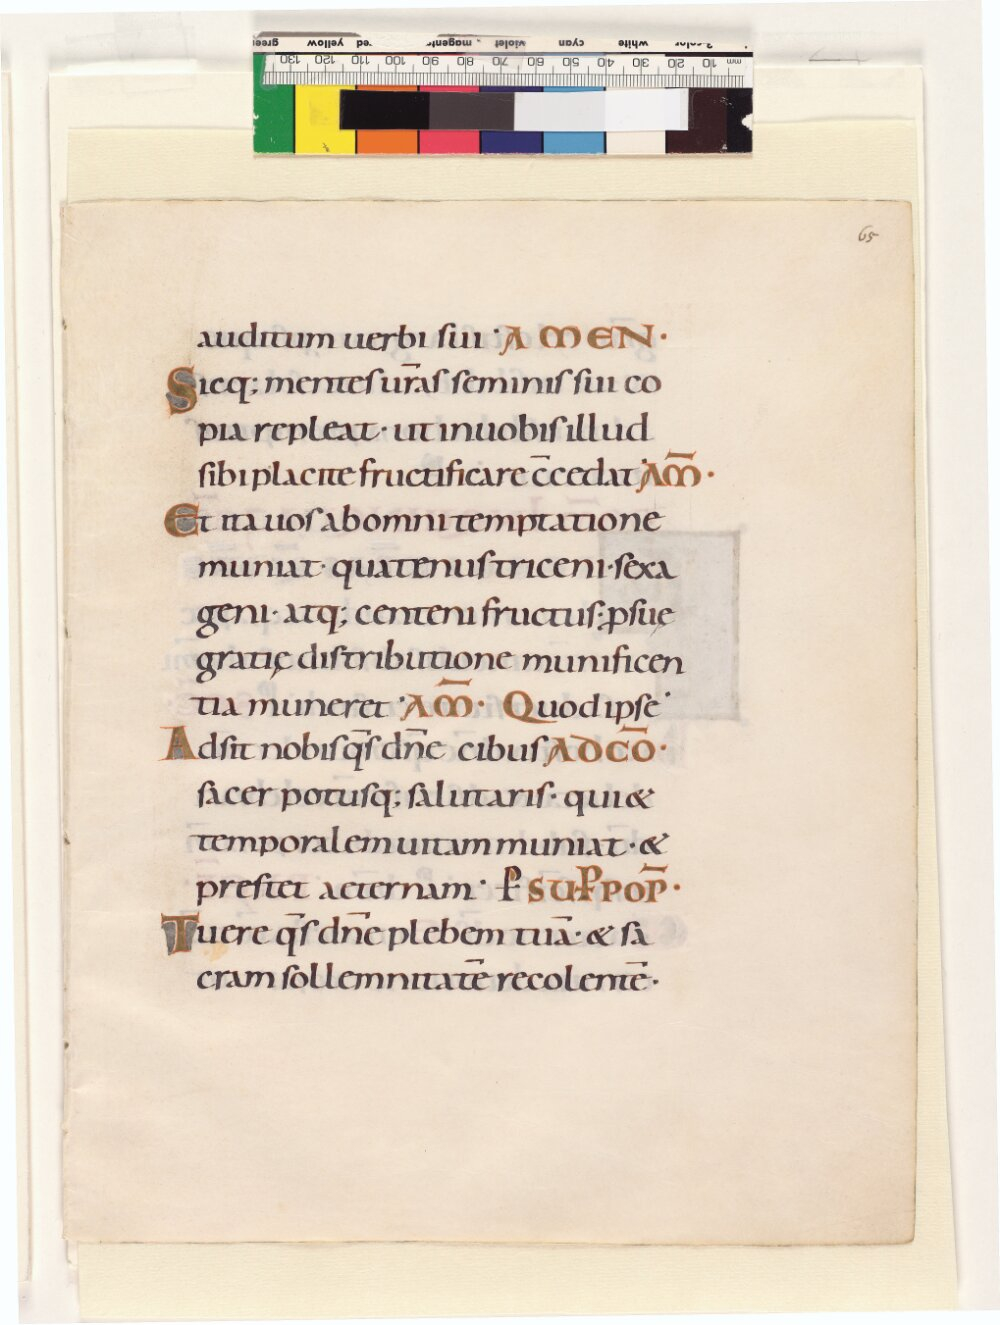 65
auditum uerbi sui · AMEN ·
Sicq; mentes ur̄as seminis sui co
pia repleat · ut in uobis illud
sibi placite fructificare c̄cedat · AM̄ ·
Et ita uos ab omni temptatione
muniat · quatenus triceni · sexa
geni · atq; centeni fructus · p̱suę
gratię distributione munificen
tia muneret · AM̄ · Quod ipse ·
Adsit nobis q̄s dn̄e cibus AD CŌ ·
sacer potusq; salutaris · qui &
temporalem uitam muniat · &
prestet aeternam · P̄ SUP̄ POP̄ ·
Tuere q̄s dn̄e plebem tuā · & sa
cram sollemnitatē recolentē ·